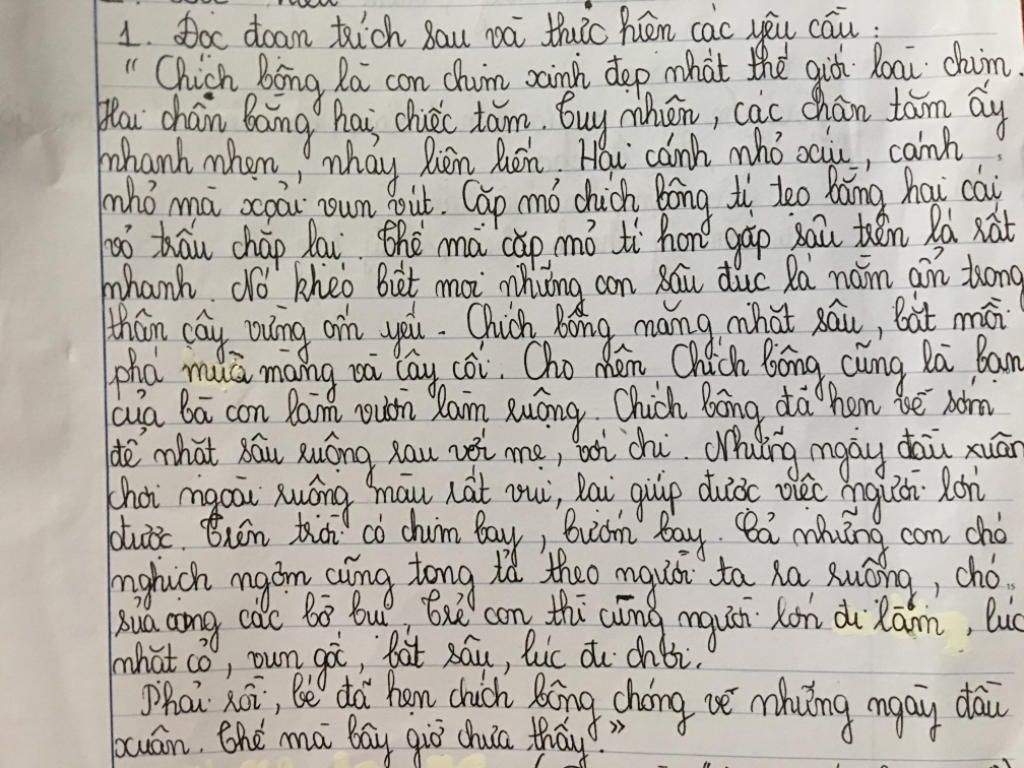 1. Đọc đoạn trích sau và thực hiện các yêu cầu:
“ Chích bông là con chim xinh đẹp nhất thế giới loài chim.
Hai chân bằng hai chiếc tăm. Tuy nhiên, các chân tăm ấy
nhanh nhẹn, nhảy liên liến. Hai cánh nhỏ xíu, cánh
nhỏ mà xoải vun vút. Cặp mỏ chích bông tí tẹo bằng hai cái
vỏ trấu chặp lại. Thế mà cặp mỏ tí hon gắp sâu trên lá rất
nhanh. Nó khéo biết moi những con sâu đục lá nằm ẩn trong
thân cây vừng ốm yếu. Chích bông năng nhặt sâu, bắt mồi
phá mùa màng và cây cối. Cho nên Chích bông cũng là bạn
của bà con làm vườn làm ruộng. Chích bông đã hẹn về sớm
để nhặt sâu ruộng rau với mẹ, với chị. Những ngày đầu xuân
chơi ngoài ruộng màu rất vui, lại giúp được việc người lớn
được. Trên trời có chim bay, bướm bay. Cả những con chó
nghịch ngợm cũng tong tả theo người ta ra ruộng, chó
sủa ong các bờ bụi. Trẻ con thì cùng người lớn đi làm, lúc
nhặt cỏ, vun gốc, bắt sâu, lúc đi chơi.
Phải rồi, bé đã hẹn chích bông chóng về những ngày đầu
xuân. Thế mà bây giờ chưa thấy.”